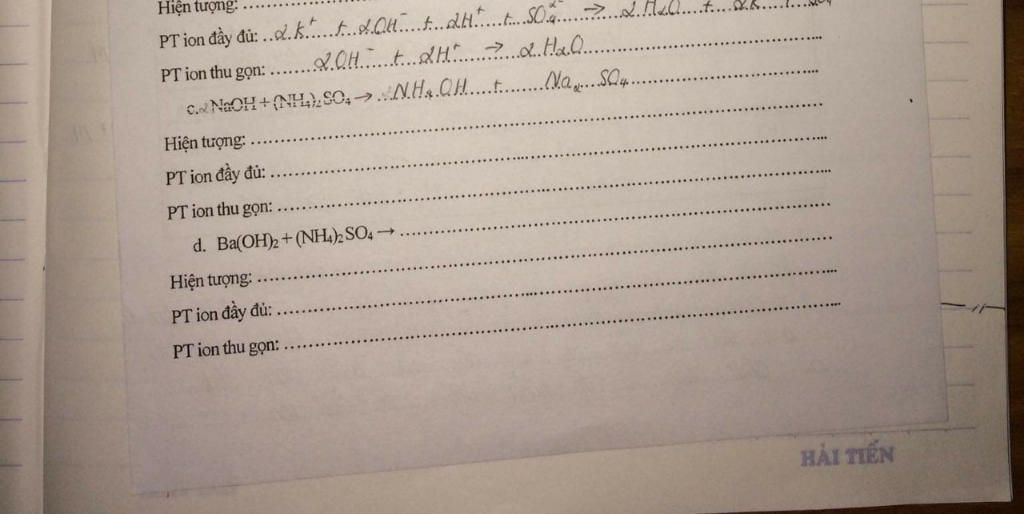 Hiện tượng: ...
PT ion đầy đủ: 2K⁺ + 2OH⁻ + 2H⁺ + SO₄²⁻ → 2H₂O + 2K
PT ion thu gọn: 2OH⁻ + 2H⁺ → 2H₂O
c. 2NaOH + (NH₄)₂SO₄ → NH₄OH + Na₂SO₄
Hiện tượng: ...
PT ion đầy đủ: ...
PT ion thu gọn: ...
d. Ba(OH)₂ + (NH₄)₂SO₄ → ...
Hiện tượng: ...
PT ion đầy đủ: ...
PT ion thu gọn: ...
HẢI TIẾN